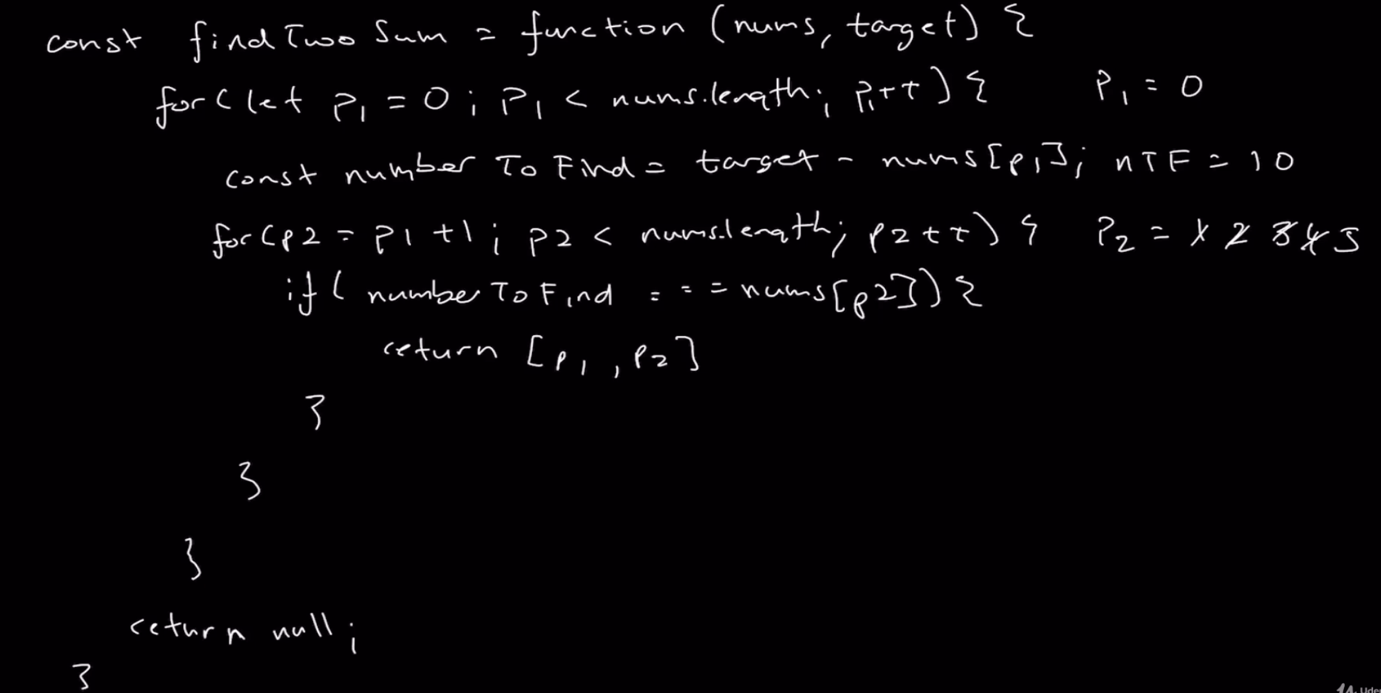 const findTwoSum = function (nums, target) {
for (let p1 = 0; p1 < nums.length; p1++) { P1 = 0
const numberToFind = target - nums[p1]; nTF = 10
for (p2 = p1 + 1; p2 < nums.length; p2++) { P2 = 1 2 3 4 5
if (numberToFind === nums[p2]) {
return [p1, p2]
}
}
}
return null;
}